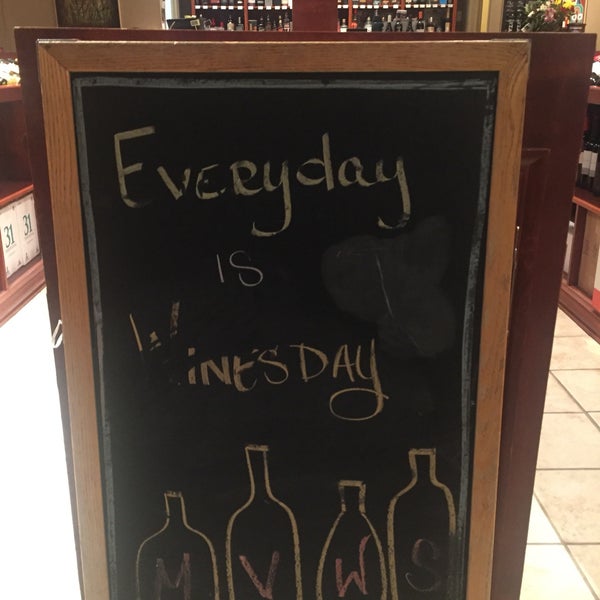 Everyday
is
Winesday
M V W S
31
31